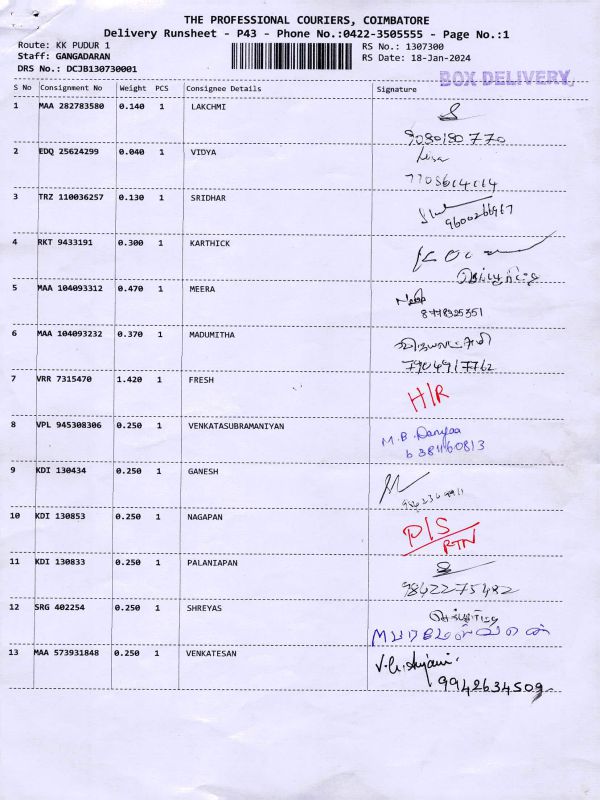 THE PROFESSIONAL COURIERS, COIMBATORE
Delivery Runsheet - P43 - Phone No.:0422-3505555 - Page No.:1
Route: KK PUDUR 1 RS No.: 1307300
Staff: GANGADARAN RS Date: 18-Jan-2024
DRS No.: DCJB130730001 BOX DELIVERY
S No Consignment No Weight PCS Consignee Details Signature
1 MAA 282783580 0.140 1 LAKCHMI
9080180770
2 EDQ 25624299 0.040 1 VIDYA
3 TRZ 110036257 0.130 1 SRIDHAR
9600266967
4 RKT 9433191 0.300 1 KARTHICK
5 MAA 104093312 0.470 1 MEERA
8778325351
6 MAA 104093232 0.370 1 MADUMITHA
7904917762
7 VRR 7315470 1.420 1 FRESH H/R
8 VPL 945308306 0.250 1 VENKATASUBRAMANIYAN M.B.
6381160813
9 KDI 130434 0.250 1 GANESH
10 KDI 130853 0.250 1 NAGAPAN D/S
RTN
11 KDI 130833 0.250 1 PALANIAPAN
9842275482
12 SRG 402254 0.250 1 SHREYAS
13 MAA 573931848 0.250 1 VENKATESAN
9942634509